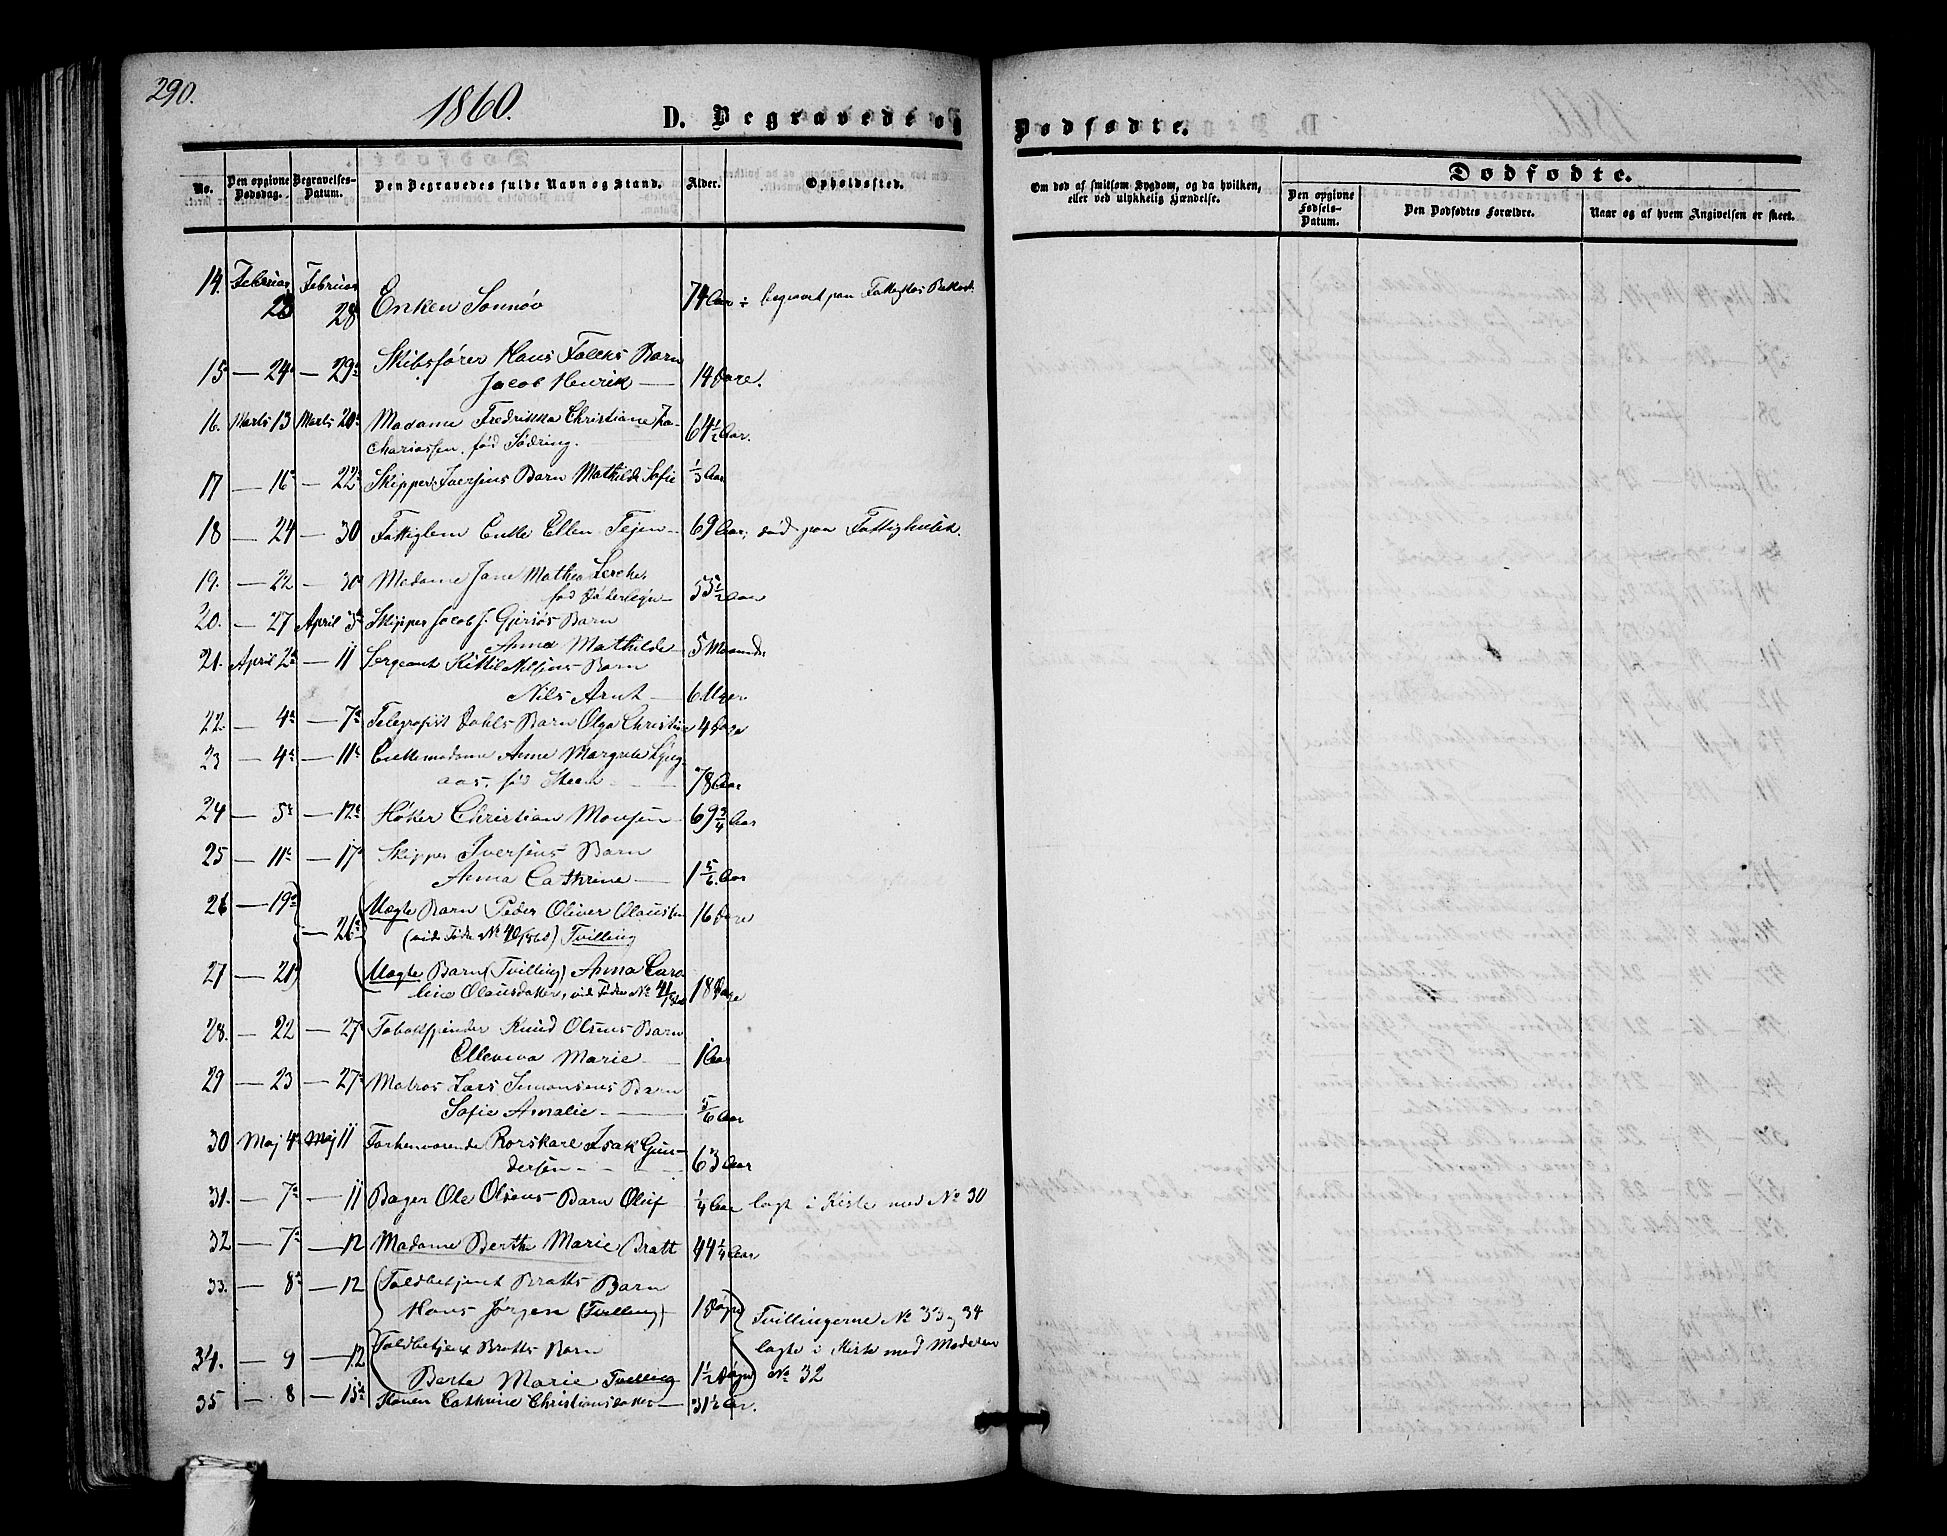 290.
1860.
D. Begravede og Dødfødte.
No. Den opgivne Dødsdag. Begravelses-Datum. Den Begravedes fulde Navn og Stand. Alder. Opholdssted. Om død af smitsom Sygdom, og da hvilken, eller ved ulykkelig Hændelse.
Dødfødte.
Den opgivne Fødsels-Datum. Den Dødfødtes Forældre. Naar og af hvem Angivelsen er skeet.
14. Februar 23 Februar 28 Enken Sonnøv 74 Aar ÷ begravet paa
15 — 24 — 29 Skibsfører Hans Falcks Barn
Jacob Henrik — 14 Dage.
16. Marts 13 Marts 20 Madame Fredrikka Christiane Za-
chariassen, fød Sødring. 64½ Aar.
17 — 16 — 22 Skipper Iversens Barn Mathilde Sofie ⅓ Aar
18 — 24 — 30 Fattiglem Enke Ellen Tejen — 69 Aar, død paa Fattighuset.
19. — 22 — 30 Madame Jane Mathea Lerche,
fød — 55½ Aar
20. — 27 April 3 Skipper Jacob J. Gjersøs Barn
Anna Mathilde — 5 Maaneder
21. April 2 — 11 Sergeant Kittil Nilsens Barn
Nils Arnt — 6 Uger
22. — 4 — 7 Telegrafist Dahls Barn Olga Christine 4 Dage
23 — 4 — 11 Enkemadame Anne Margrete Lyng-
aas, fød Steen — 78 Aar
24 — 5 — 12 Høker Christian Monsen — 69¾ Aar
25 — 11 — 17 Skipper Iversens Barn
Anna Cathrine — 1⅚ Aar
26 — 19 — 26 Uægte Barn Peder Oliver Olaussen 16 Dage
(vide Fødte No 40/1860) Tvilling
27 — 21 Uægte Barn (Tvilling) Anna Caro-
line Olausdatter, vide Fødte No 41/1860 18 Dage
28. — 22 — 27 Tobakspinder Knud Olsens Barn
Ellevina Marie — 1 Aar
29 — 23 — 27 Matros Lars Simonsens Barn
Sofie Amalie — ⅚ Aar
30 Maj 4 Maj 11 Forhenværende Rorskarl Isak Gun-
dersen — 63 Aar
31. — 7 — 11 Bager Ole Olsens Barn Oluf ¼ Aar lagt i Kiste med No 30
32 — 7 — 12 Madame Berthe Marie Bratt 44¼ Aar
33. — 8 — 12 Toldbetjent Bratts Barn
Hans Jørgen (Tvilling) 1 Døgn Tvillingerne No 33 og 34
34. — 9 — 12 Toldbetjent Bratts Barn lagte i Kiste med Moderen
Berte Marie Tvilling 1½ Døgn No 32
35 — 8 — 15 Konen Cathrine Christiansdatter — 31½ Aar.